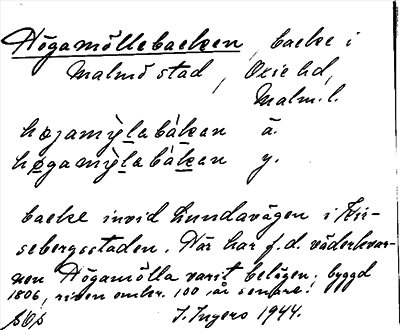 Högamöllebacken, backe i
Malmö stad, Oxie hd,
Malm. l.
højamỳlabákan ä.
høgamỳlabákan y.
backe invid Lundavägen i Kir-
sebergsstaden. Här har f.d. väderkvar-
nen Högamölla varit belägen; byggd
1806, riven omkr. 100 år senare.
I. Ingers 1944.